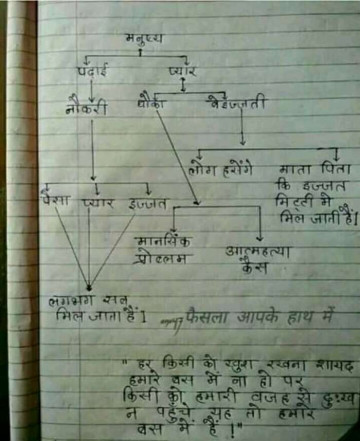 मनुष्य
पढाई प्यार
नौकरी धोका बेइज्जती
लोग हसेंगे माता पिता
कि इज्जत
मिट्टी मे
मिल जाती हैं]
पैसा प्यार इज्जत
मानसिक
प्रोब्लम
आत्महत्या
केस
लगभग सब
मिल जाता हैं]
फैसला आपके हाथ में
" हर किसी को खुश रखना शायद
हमारे बस में ना हो पर
किसी को हमारी वजह से दुःख
न पहुंचे यह तो हमारे
बस में हैं !"